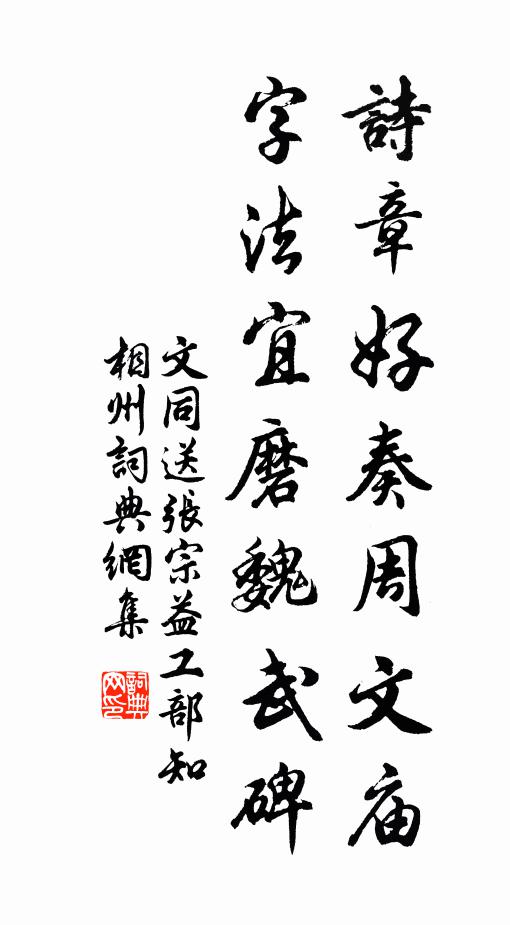 詩章好奏周文庙
字法宜磨魏武碑
文同送張宗益工部知
相州詞典網集
詞典
网印